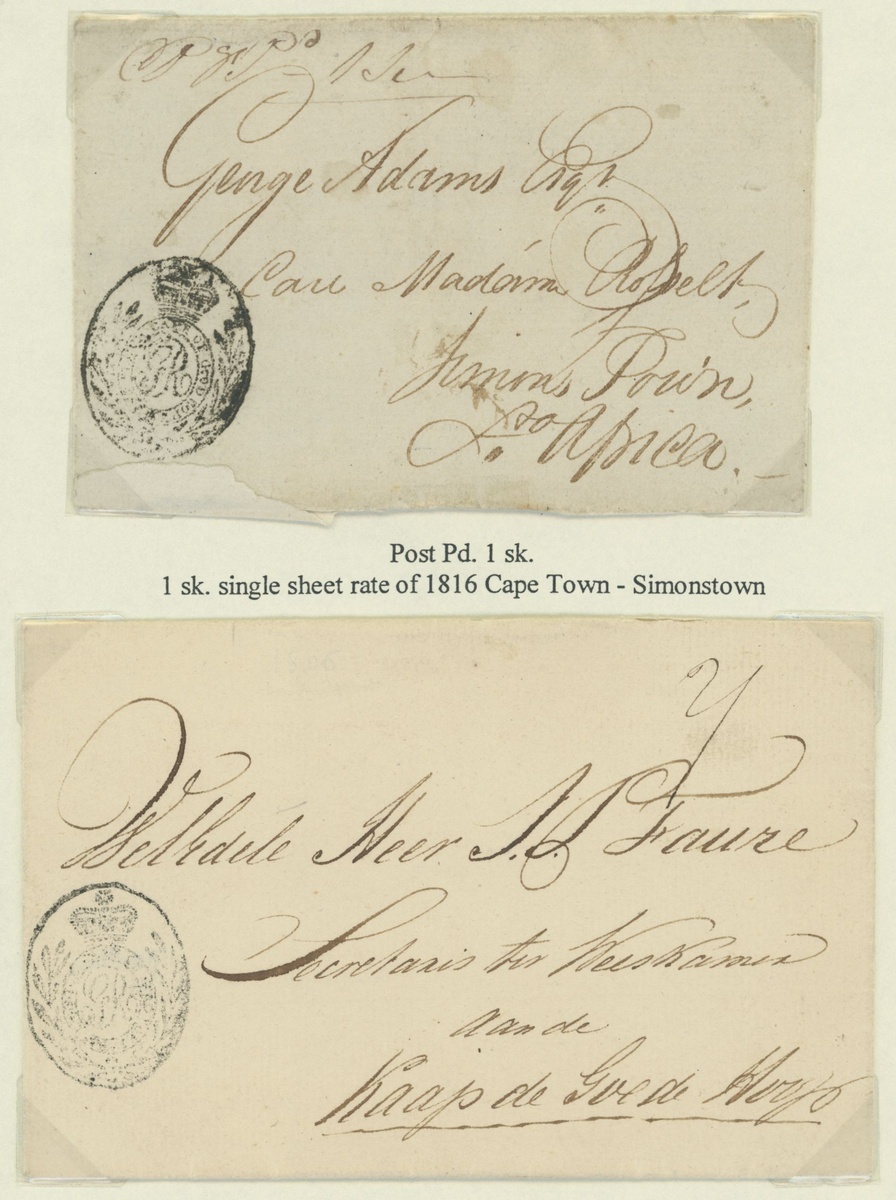 Pd 1 Sk
George Adams Esqr.
Care Madam
Simons Town,
So. Africa.
GR
Post Pd. 1 sk.
1 sk. single sheet rate of 1816 Cape Town - Simonstown
WelEdele Heer J. J. Faure
Secretaris ter Weeskamer
aan de
Kaap de Goede Hoop
GR